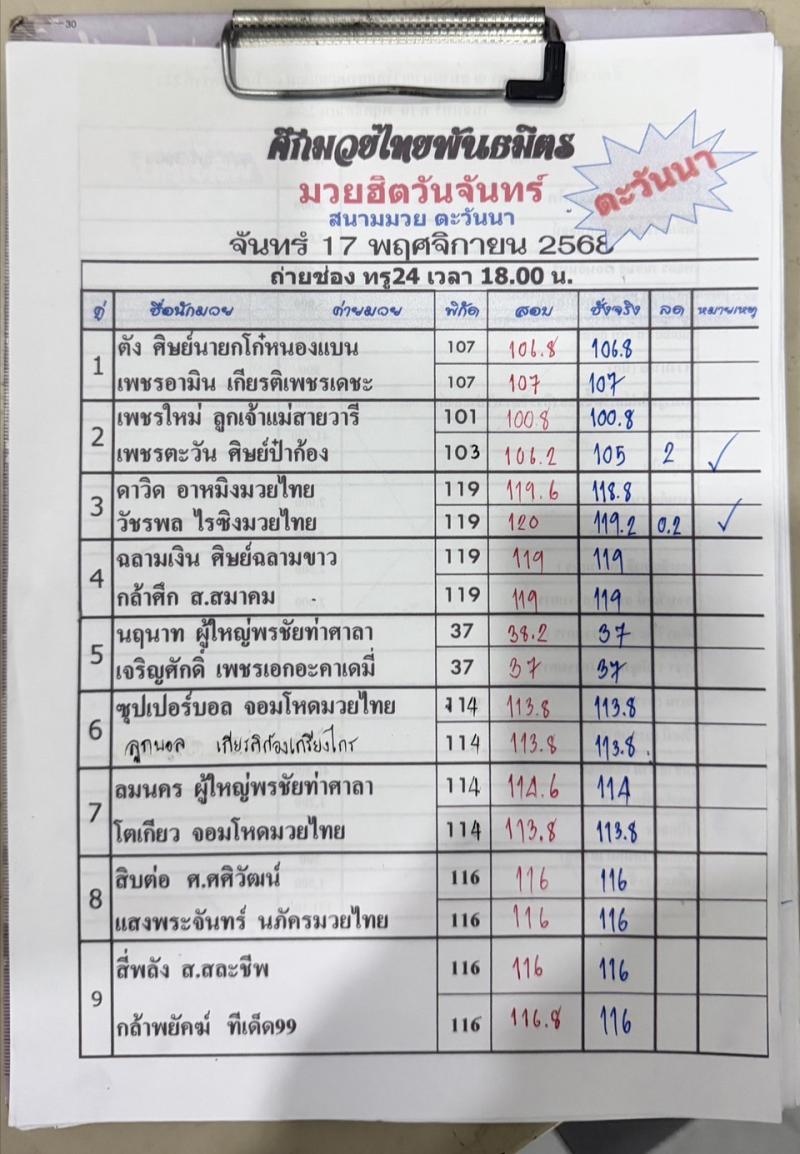 30
ศึกมวยไทยพันธมิตร
มวยฮิตวันจันทร์
ตะวันนา
สนามมวย ตะวันนา
จันทร์ 17 พฤศจิกายน 2568
ถ่ายช่อง ทรู24 เวลา 18.00 น.
คู่ ชื่อนักมวย ค่ายมวย พิกัด สอบ ชั่งจริง ลด หมายเหตุ
1 ตัง ศิษย์นายกโก๋หนองแบน 107 106.8 106.8
เพชรอามิน เกียรติเพชรเดชะ 107 107 107
2 เพชรใหม่ ลูกเจ้าแม่สายวารี 101 100.8 100.8
เพชรตะวัน ศิษย์ป๋าก้อง 103 106.2 105 2 ✓
3 ดาวิด อาหมิงมวยไทย 119 119.6 118.8
วัชรพล ไรซิงมวยไทย 119 120 119.2 0.2 ✓
4 ฉลามเงิน ศิษย์ฉลามขาว 119 119 119
กล้าศึก ส.สมาคม 119 119 119
5 นฤนาท ผู้ใหญ่พรชัยท่าศาลา 37 38.2 37
เจริญศักดิ์ เพชรเอกอะคาเดมี่ 37 37 37
6 ซุปเปอร์บอล จอมโหดมวยไทย 114 113.8 113.8
ลูกนอล เกียรติก้องเกรียงไกร 114 113.8 113.8
7 ลมนคร ผู้ใหญ่พรชัยท่าศาลา 114 114.6 114
โตเกียว จอมโหดมวยไทย 114 113.8 113.8
8 สิบต่อ ศ.ศศิวัฒน์ 116 116 116
แสงพระจันทร์ นภัครมวยไทย 116 116 116
9 สี่พลัง ส.สละชีพ 116 116 116
กล้าพยัคฆ์ ทีเด็ด99 116 116.8 116